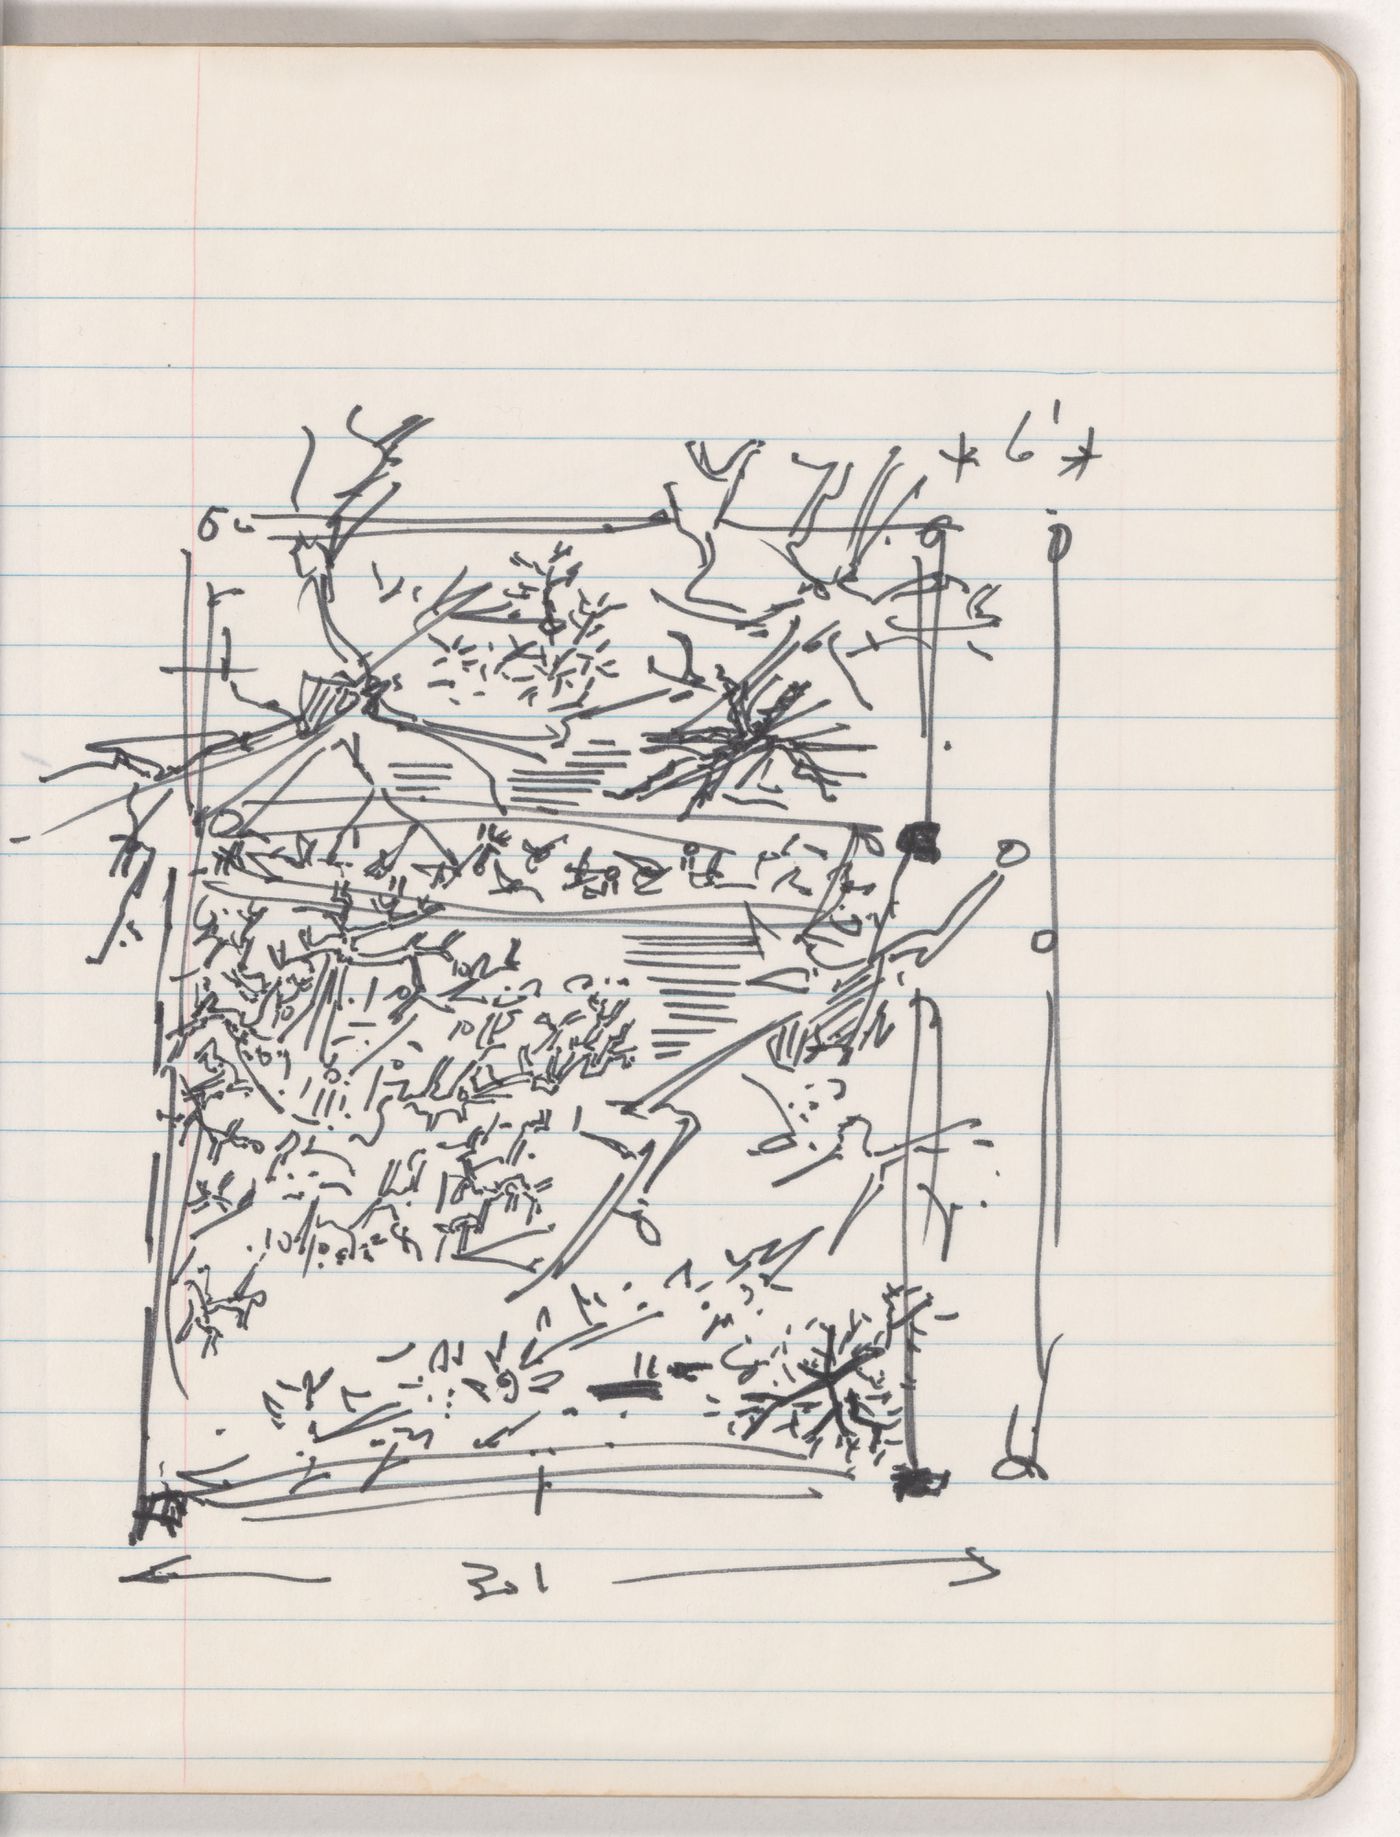 * 6' *
3.1